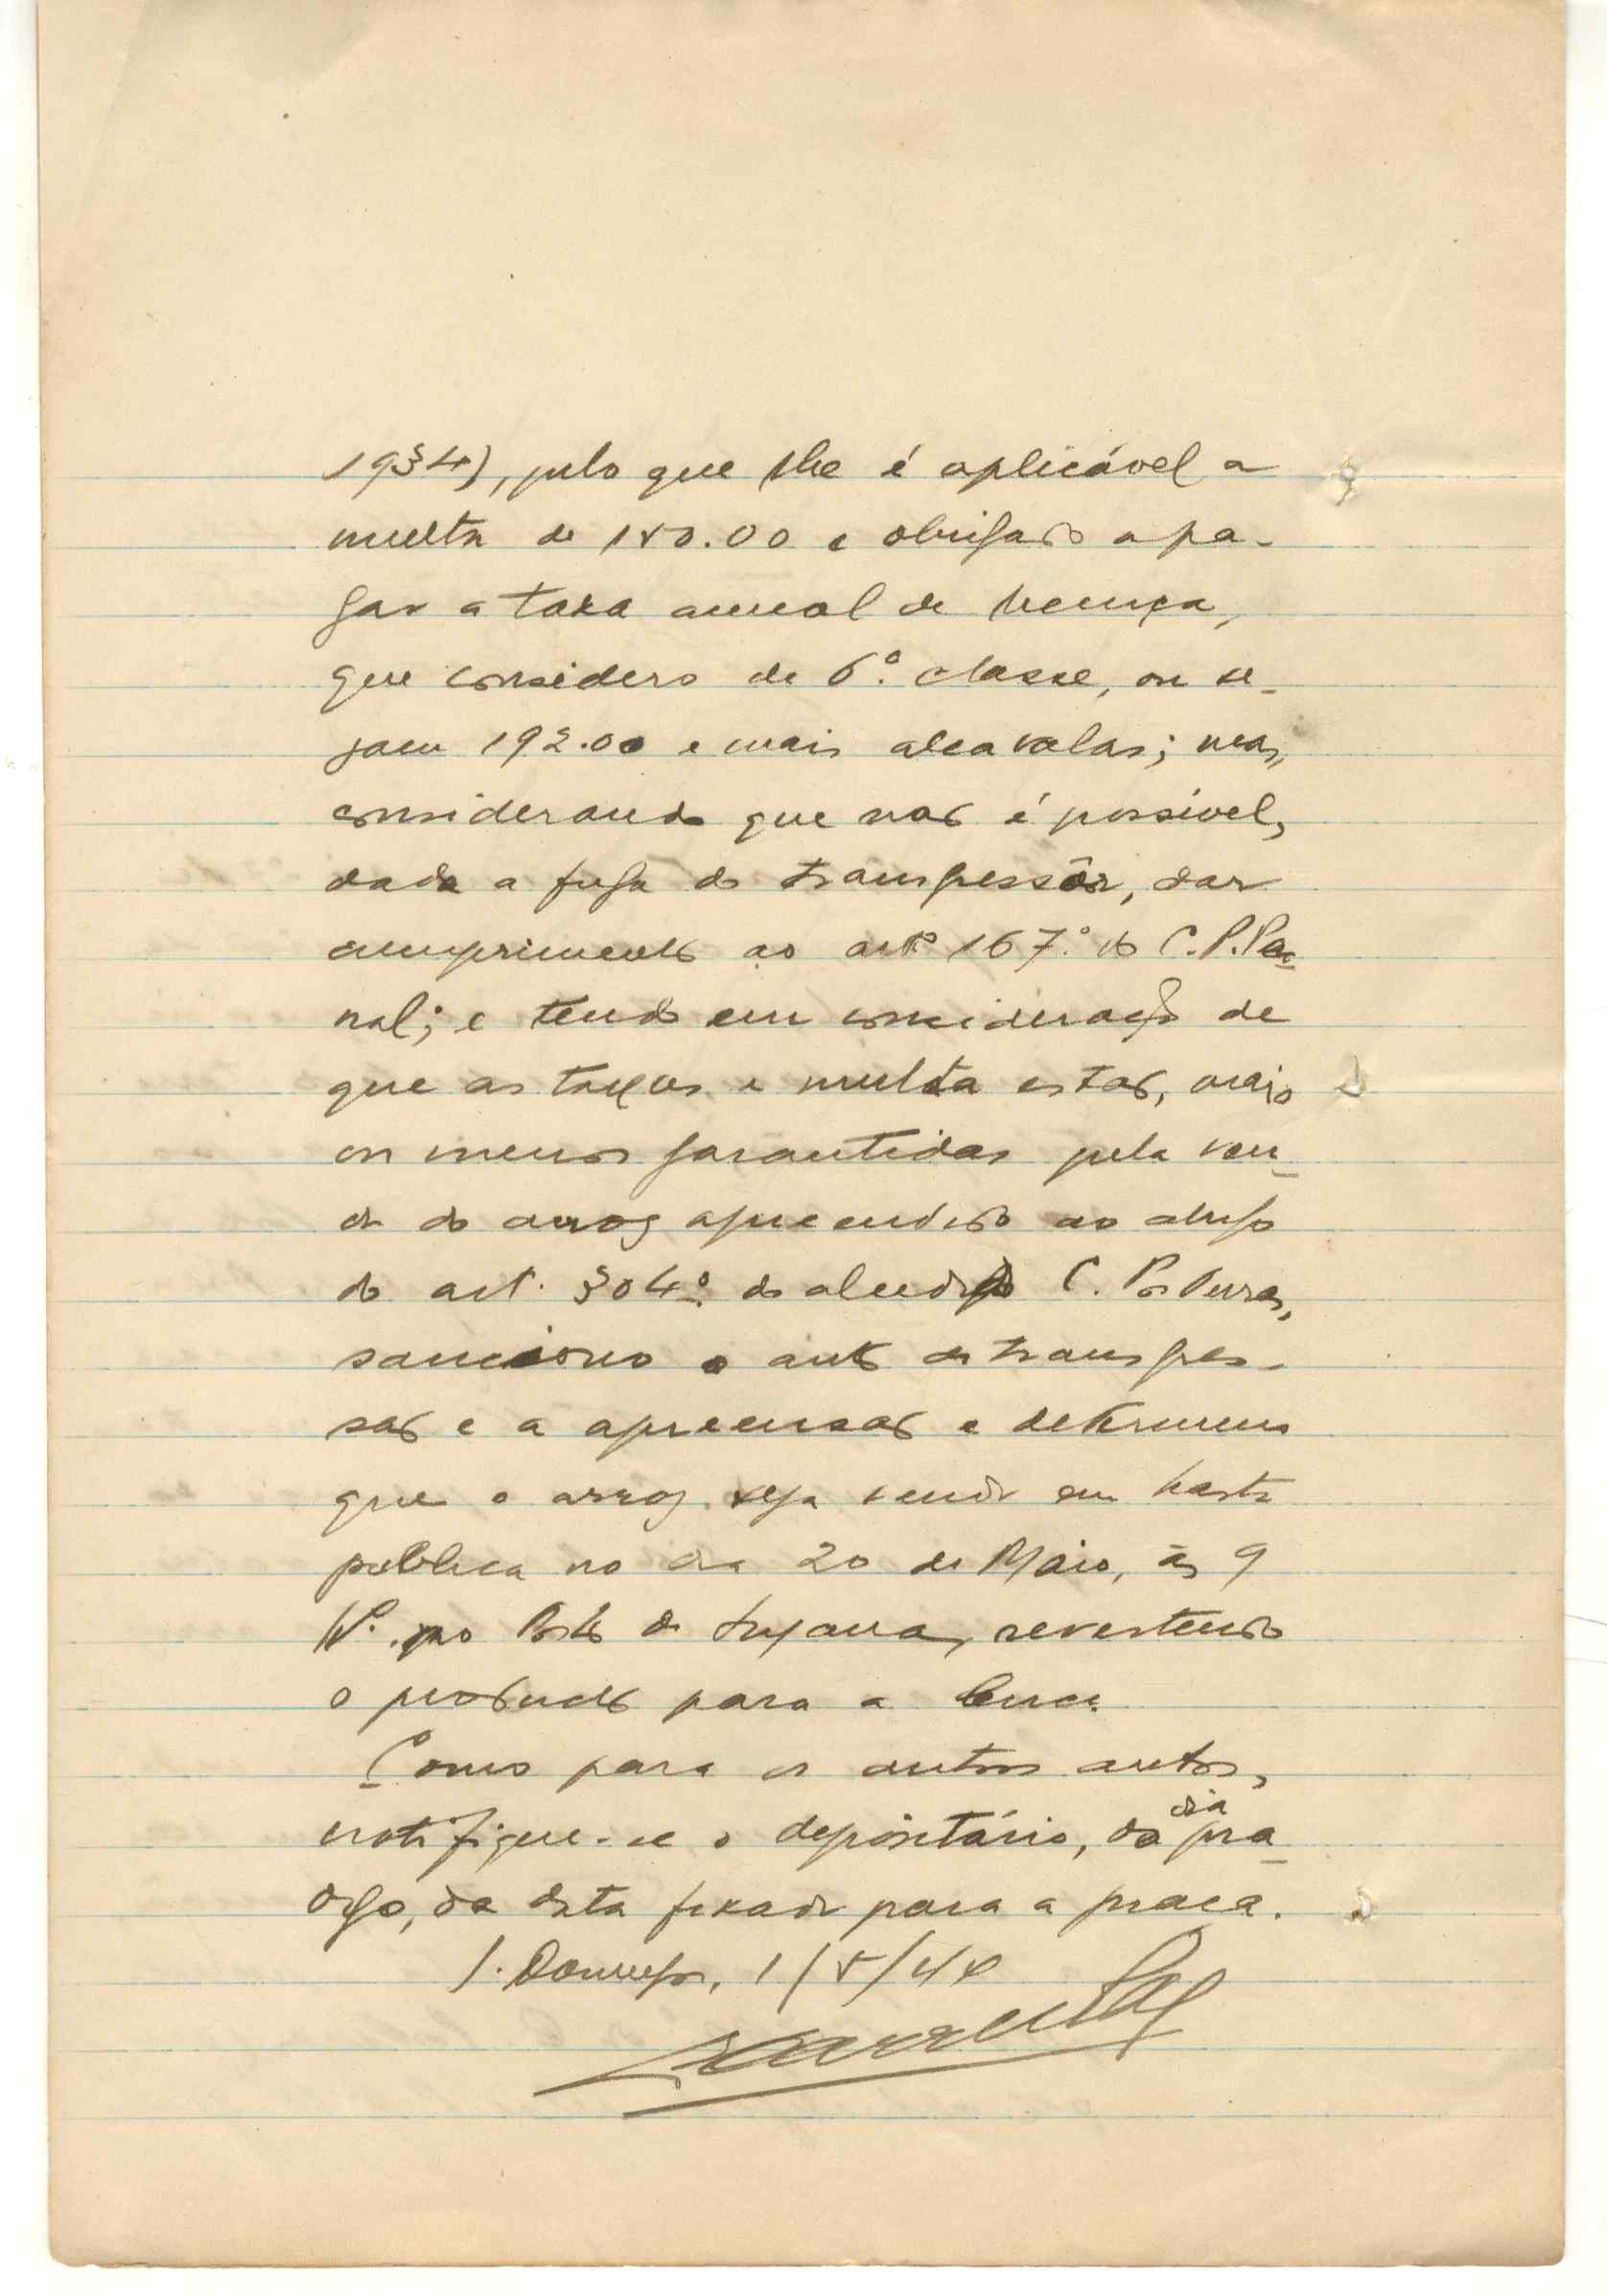 1934), pelo que lhe é aplicável a
multa de 150.00 e obrigado a pa-
gar a taxa anual de licença,
que considero de 6.ª classe, ou se-
jam 192.00 e mais alcavalas; mas,
considerando que não é possível,
dada a fuga do transgressôr, dar
cumprimento ao artº 167.º do C. P. Pe-
nal; e tendo em consideração de
que as taxas e multa estão, mais
ou menos garantidas pela ven-
da do arroz apreendido ao abrigo
do art. 304º. do aludido C. Posturas,
sanciono o auto de transgres-
são e a apreensão e determino
que o arroz seja vendido em hasta
publica no dia 20 de Maio, ás 9
H. no Posto de, revertendo
o producto para a
Como para os outros autos,
notifique-se o depositário, do dia pra
digo, da data fixada para a praça.
S. Domingos, 1/5/44